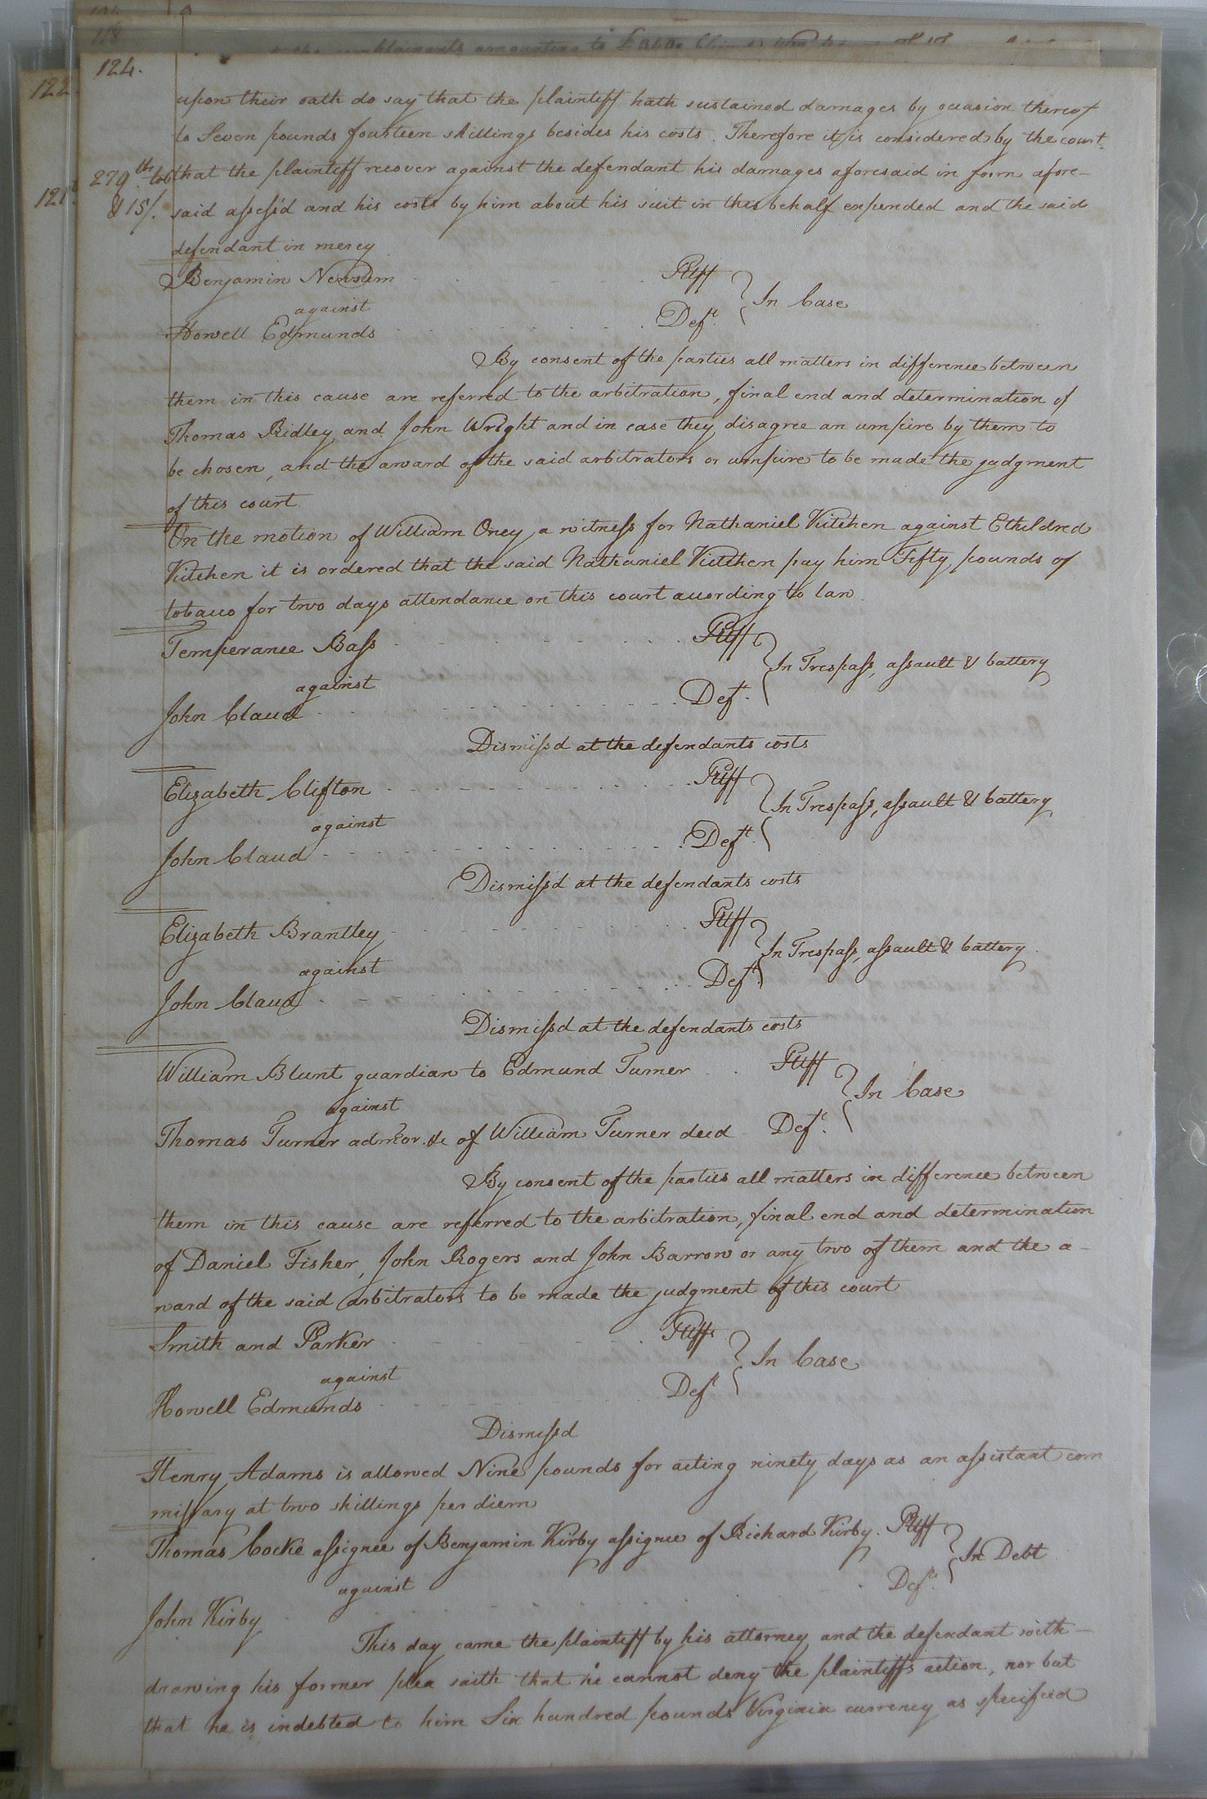 124.
upon their oath do say that the plaintiff hath sustained damages by occasion thereof
to Seven pounds fourteen shillings besides his costs. Therefore it is considered by the court
279 lb tob that the plaintiff recover against the defendant his damages aforesaid in form afore-
& 15/. said assess'd and his costs by him about his suit in this behalf expended and the said
defendant in mercy
Benjamin Newsum Pltff
against } In Case
Howell Edmunds Deft.
By consent of the parties all matters in difference between
them in this cause are referred to the arbitration, final end and determination of
Thomas Ridley and John Wright and in case they disagree an umpire by them to
be chosen, and the award of the said arbitrators or umpire to be made the judgment
of this court
On the motion of William Oney a witness for Nathaniel Kitchen against Etheldred
Kitchen it is ordered that the said Nathaniel Kitchen pay him Fifty pounds of
tobacco for two days attendance on this court according to law.
Temperance Bass Pltff
against } In Trespass, assault & battery
John Claud Deft.
Dismiss'd at the defendants costs
Elizabeth Clifton Pltff
against } In Trespass, assault & battery
John Claud Deft.
Dismiss'd at the defendants costs
Elizabeth Brantley Pltff
against } In Trespass, assault & battery.
John Claud Deft.
Dismiss'd at the defendants costs
William Blunt guardian to Edmund Turner Pltff
against } In Case
Thomas Turner admor. &c of William Turner deed Deft.
By consent of the parties all matters in difference between
them in this cause are referred to the arbitration, final end and determination
of Daniel Fisher, John Rogers and John Barrow or any two of them and the a-
ward of the said arbitrators to be made the judgment of this court
Smith and Parker Pltffs
against } In Case
Howell Edmunds Deft
Dismiss'd
Henry Adams is allowed Nine pounds for acting ninety days as an assistant com
missary at two shillings per diem
Thomas Cocke assignee of Benjamin Kirby assignee of Richard Kirby. Pltff
against } In Debt
John Kirby Deft.
This day came the plaintiff by his attorney and the defendant with-
drawing his former plea saith that he cannot deny the plaintiffs action, nor but
that he is indebted to him Six hundred pounds Virginia currency as specified